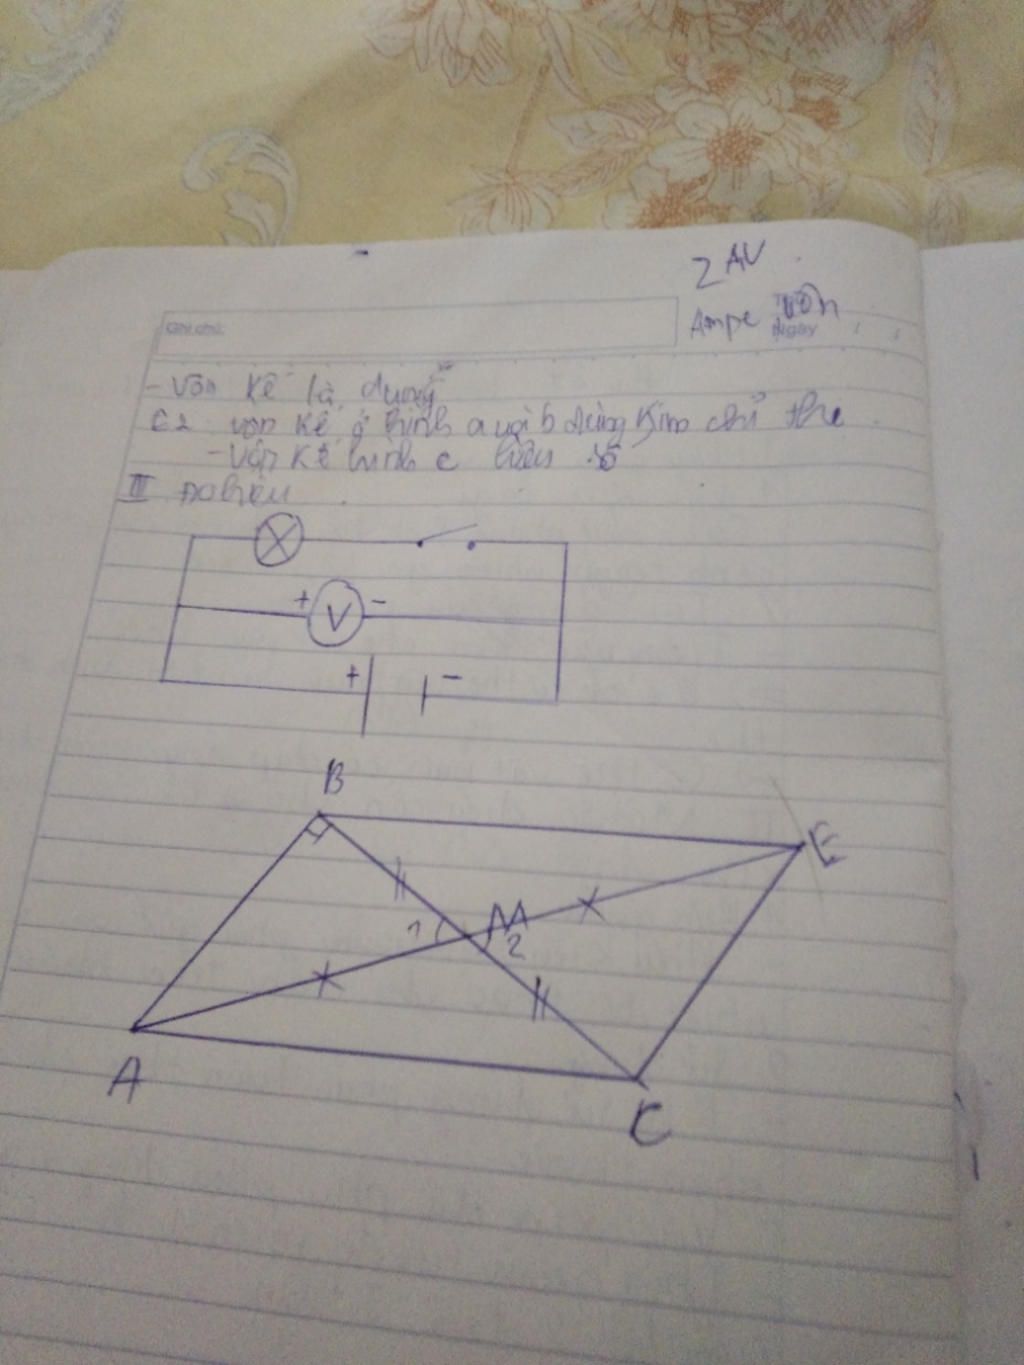 2 AV
Ghi chú:
Ampe vôn
Ngày
- Vôn Kế là dụng
C2 vôn Kế ở hình a và b dùng Kim chỉ thị
- Vôn Kế hình c hiện số
III Đo hiệu
+ V -
+ -
B
E
1 M
2
A
C